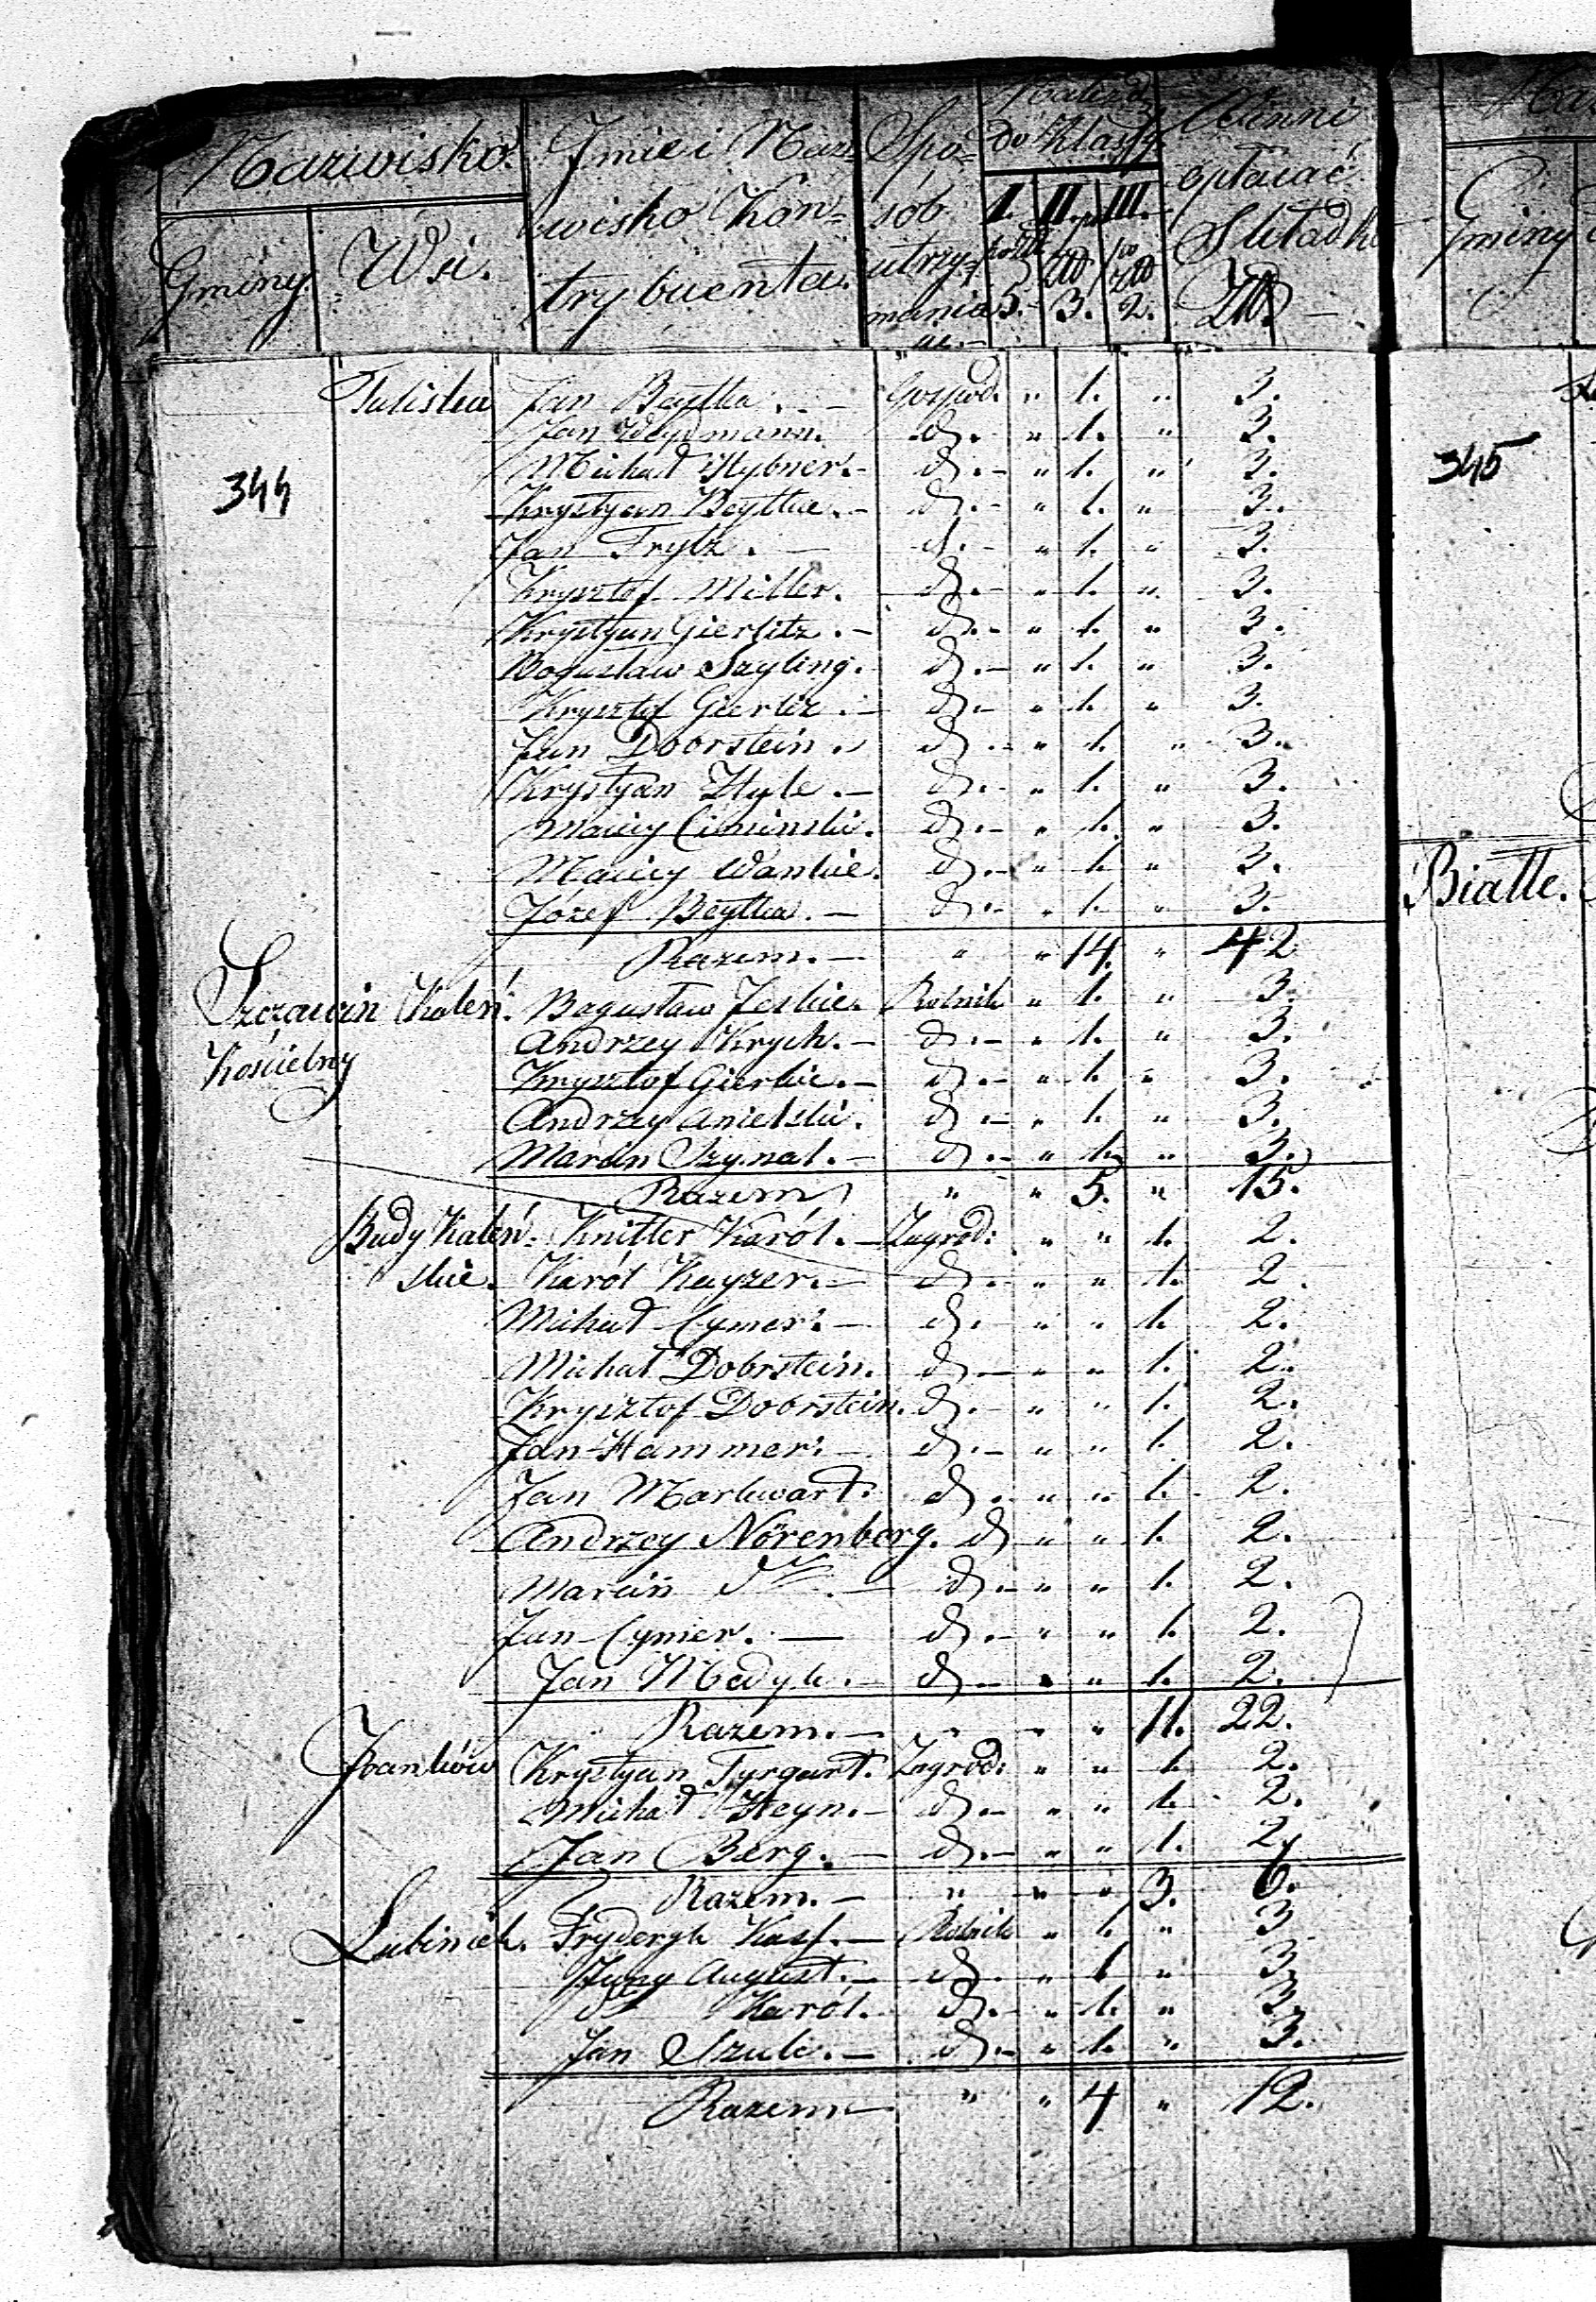 Nazwisko.
Gminy. Wsi.
Jmie i Naz=
wisko Kon=
trybuenta.
Spo=
sób
utrzy=
mania
do Klassy.
I. II. III.
5. 3. 2.
Winni
opłacać
Składki
Złł.
Gminy
Jan Beytka. Gospod. " 1. " 3.
Jan Weydmann. d. " 1. " 3.
Michał Hybner. d. " 1. " 3.
344
Krystyan Beytke. d. " 1. " 3.
Jan Frytz. d. " 1. " 3.
Krysztof Miller. d. " 1. " 3.
Krystyan Gierlitz. d. " 1. " 3.
Bogusław Szyling. d. " 1. " 3.
Krysztof Gierlitz. d. " 1. " 3.
Jan Dobrstein. d. " 1. " 3.
Krystyan Hyle. d. " 1. " 3.
Maciey Ciminski. d. " 1. " 3.
Maciey Wankie. d. " 1. " 3.
Józef Beytka. d. " 1. " 3.
Razem. " " 14. " 42
Szczawin Kościelny
Kaleń. Bogusław Jeskie. Rolnik " 1. " 3.
Andrzey Krych. d. " 1. " 3.
Krysztof Gierkie. d. " 1. " 3.
Andrzey Anielski. d. " 1. " 3.
Marcin Szynal. d. " 1. " 3.
Razem " " 5. " 15.
Budy Kaleń= Knitter Karól. Zagrod: " " 1. 2.
skie. Karól Kayzer. d. " " 1. 2.
Michał Cymer. d. " " 1. 2.
Michał Dobrstein. d. " " 1. 2.
Krysztof Dobrstein. d. " " 1. 2.
Jan Hammer. d. " " 1. 2.
Jan Markwart. d. " " 1. 2.
Andrzey Nörenberg. d " " 1. 2.
Marcin d. d. " " 1. 2.
Jan Cymer. d. " " 1. 2.
Jan Medyk. d. " " 1. 2.
Razem. " " " 11. 22.
Krystyan Tyrgart. Zagrod: " " 1. 2.
Michał Heyn. d. " " 1. 2.
Jan Berg. d. " " 1. 2.
Razem. " " " 3. 6.
Lubiniek. Fryderyk Rolnik " 1. " 3
Jung August. d. " 1 " 3.
Karól. d. " 1. " 3.
Jan Szulc. d. " 1. " 3.
Razem " " 4 " 12.
345
Białłe.